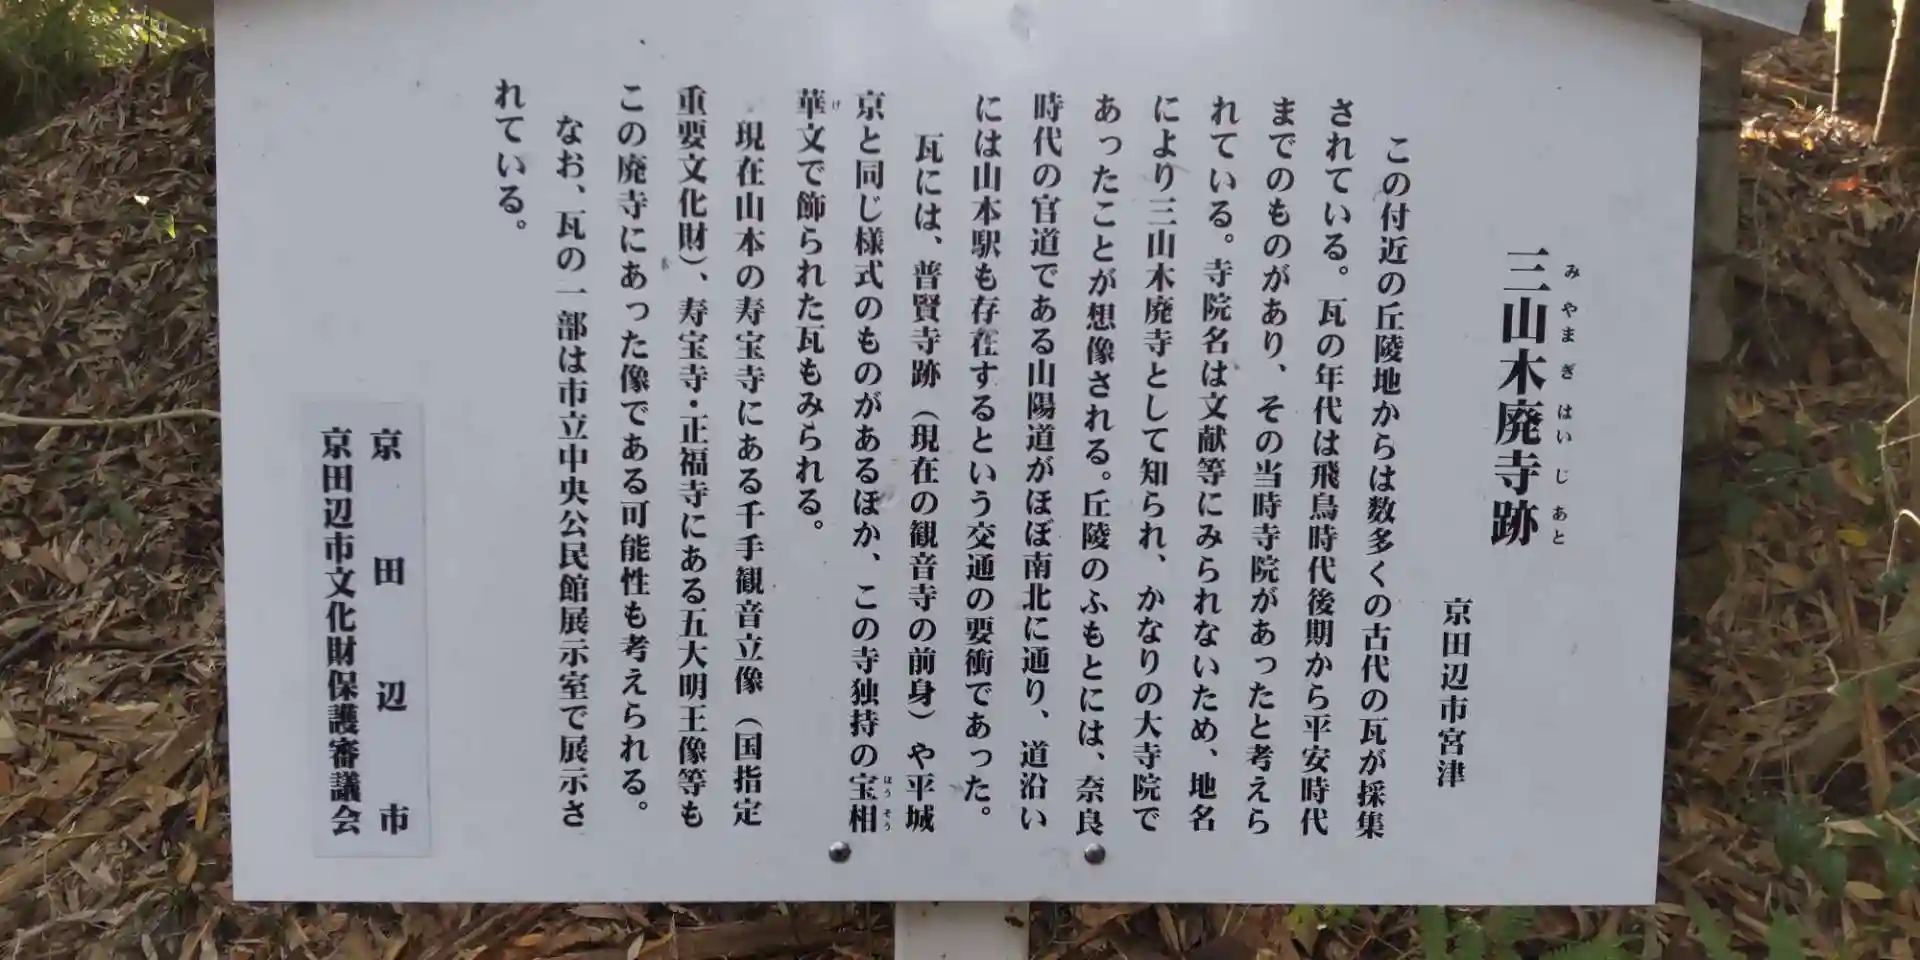 三山木廃寺跡
みやまぎはいじあと
京田辺市宮津
この付近の丘陵地からは数多くの古代の瓦が採集
されている。瓦の年代は飛鳥時代後期から平安時代
までのものがあり、その当時寺院があったと考えら
れている。寺院名は文献等にみられないため、地名
により三山木廃寺として知られ、かなりの大寺院で
あったことが想像される。丘陵のふもとには、奈良
時代の官道である山陽道がほぼ南北に通り、道沿い
には山本駅も存在するという交通の要衝であった。
瓦には、普賢寺跡（現在の観音寺の前身）や平城
京と同じ様式のものがあるほか、この寺独持の宝相
ほうそう
華文で飾られた瓦もみられる。
け
現在山本の寿宝寺にある千手観音立像（国指定
重要文化財）、寿宝寺・正福寺にある五大明王像等も
この廃寺にあった像である可能性も考えられる。
なお、瓦の一部は市立中央公民館展示室で展示さ
れている。
京田辺市
京田辺市文化財保護審議会